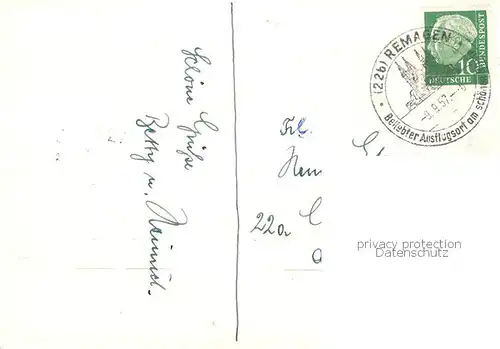 Schöne Grüße
Betty u. Heinrich.
(22b) REMAGEN
-9.9.57.-
Beliebter Ausflugsort am schön
10
DEUTSCHE
BUNDESPOST
Frl.
22a
privacy protection
Datenschutz